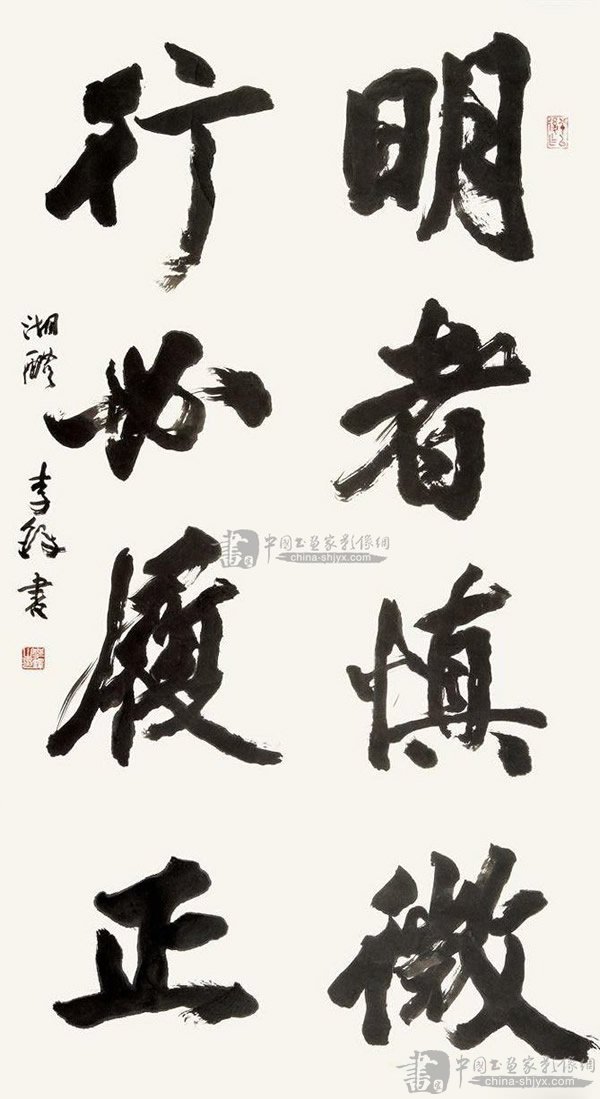 明者慎微
行必履正
湖醴 李铎书
中国书画家影像網
china-shjyx.com
中国书画家影像網
www.china-shjyx.com